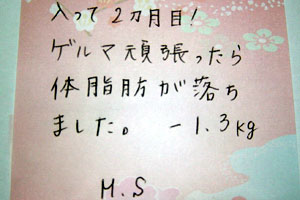 入って2カ月目!
ゲルマ頑張ったら
体脂肪が落ち
ました。 -1.3kg
M.S